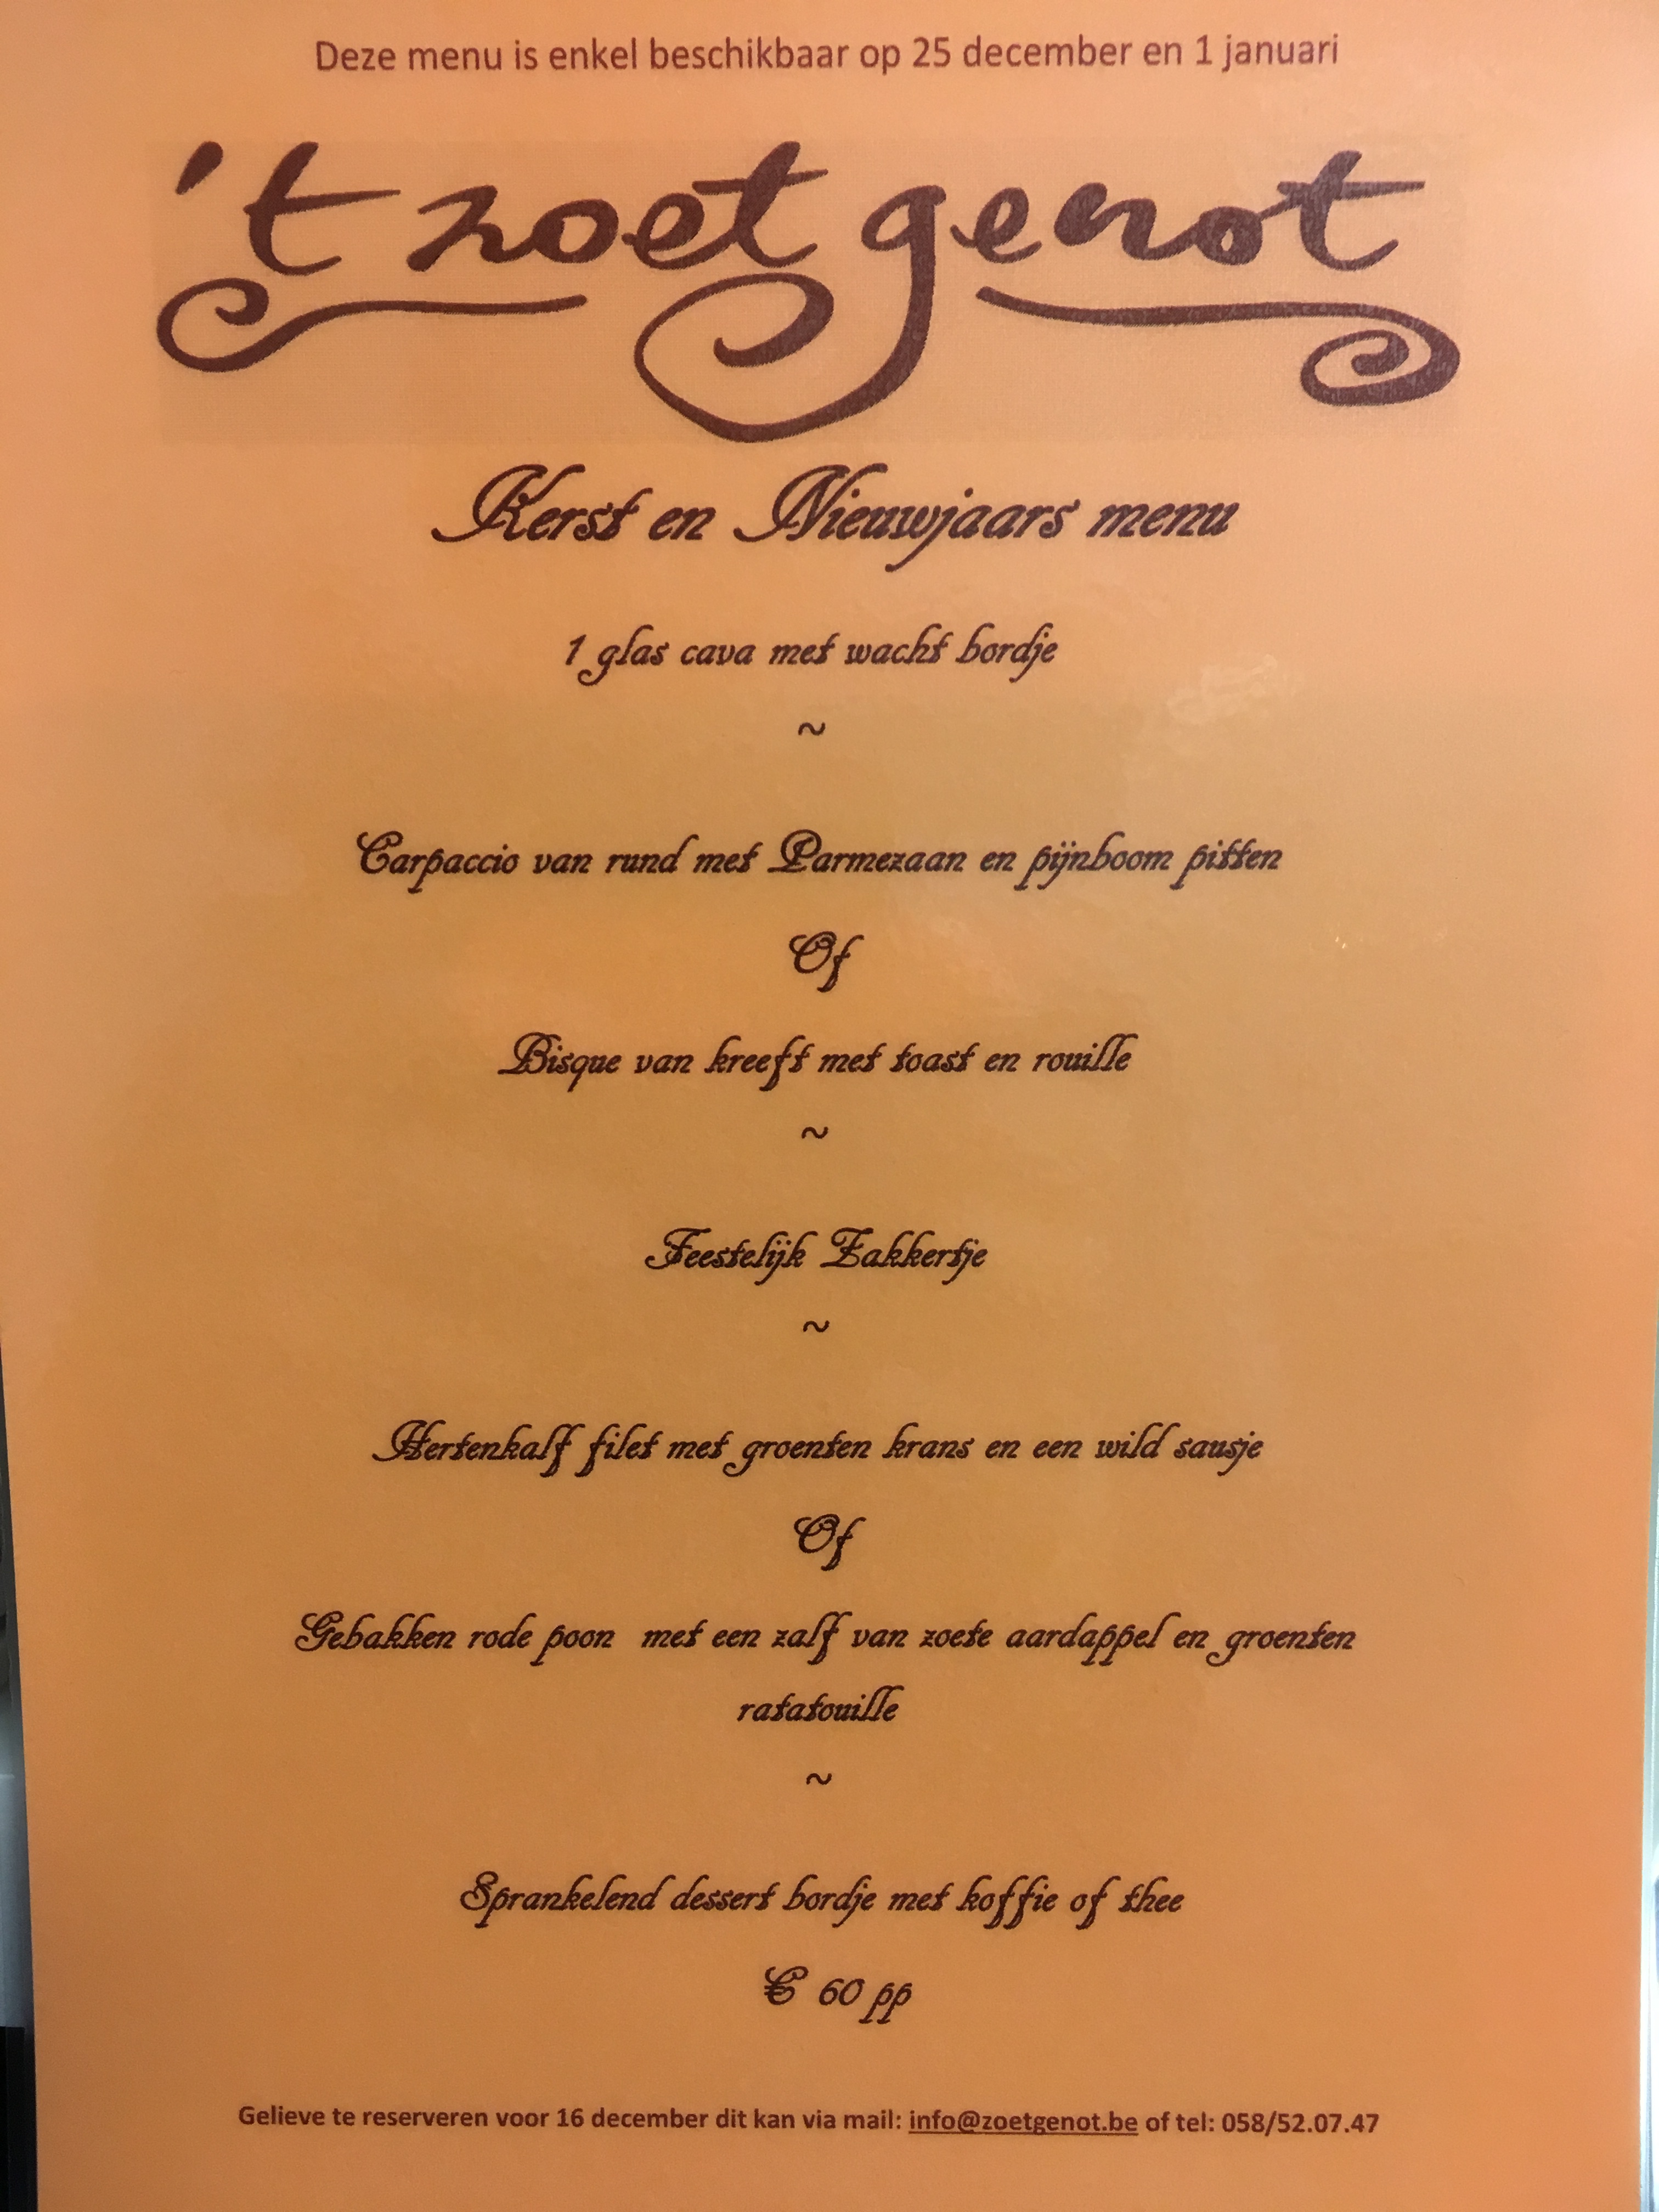 Deze menu is enkel beschikbaar op 25 december en 1 januari
't zoet genot
Kerst en Nieuwjaars menu
1 glas cava met wacht bordje
~
Carpaccio van rund met Parmezaan en pijnboom pitten
Of
Bisque van kreeft met toast en rouille
~
Feestelijk Zakkertje
~
Hertenkalf filet met groenten krans en een wild sausje
Of
Gebakken rode poon met een zalf van zoete aardappel en groenten
ratatouille
~
Sprankelend dessert bordje met koffie of thee
€ 60 pp
Gelieve te reserveren voor 16 december dit kan via mail: info@zoetgenot.be of tel: 058/52.07.47